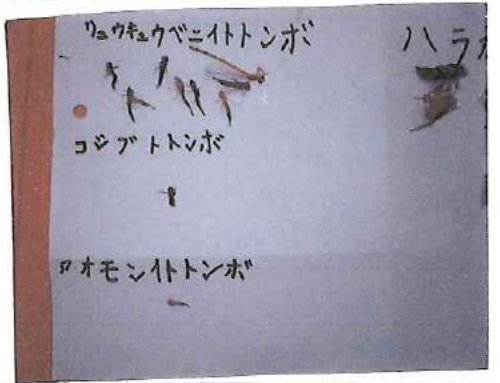 リュウキュウベニイトトンボ
コシブトトンボ
アオモンイトトンボ
ハラ